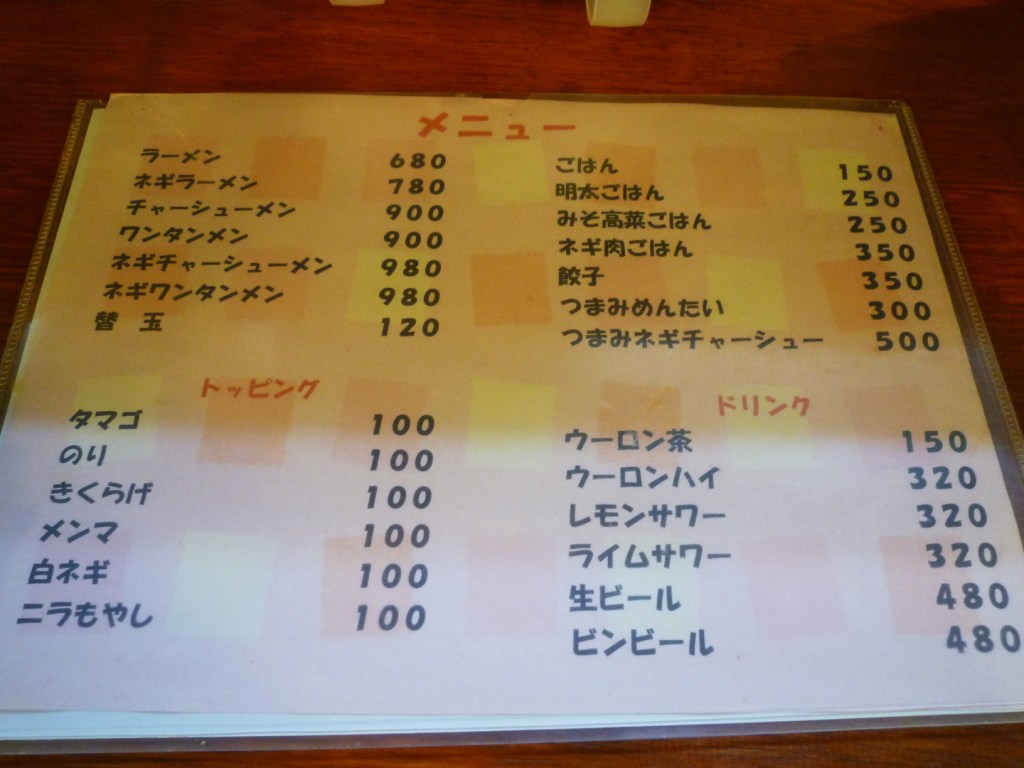 メニュー
ラーメン 680
ネギラーメン 780
チャーシューメン 900
ワンタンメン 900
ネギチャーシューメン 980
ネギワンタンメン 980
替 玉 120
ごはん 150
明太ごはん 250
みそ高菜ごはん 250
ネギ肉ごはん 350
餃子 350
つまみめんたい 300
つまみネギチャーシュー 500
トッピング
タマゴ 100
のり 100
きくらげ 100
メンマ 100
白ネギ 100
ニラもやし 100
ドリンク
ウーロン茶 150
ウーロンハイ 320
レモンサワー 320
ライムサワー 320
生ビール 480
ビンビール 480